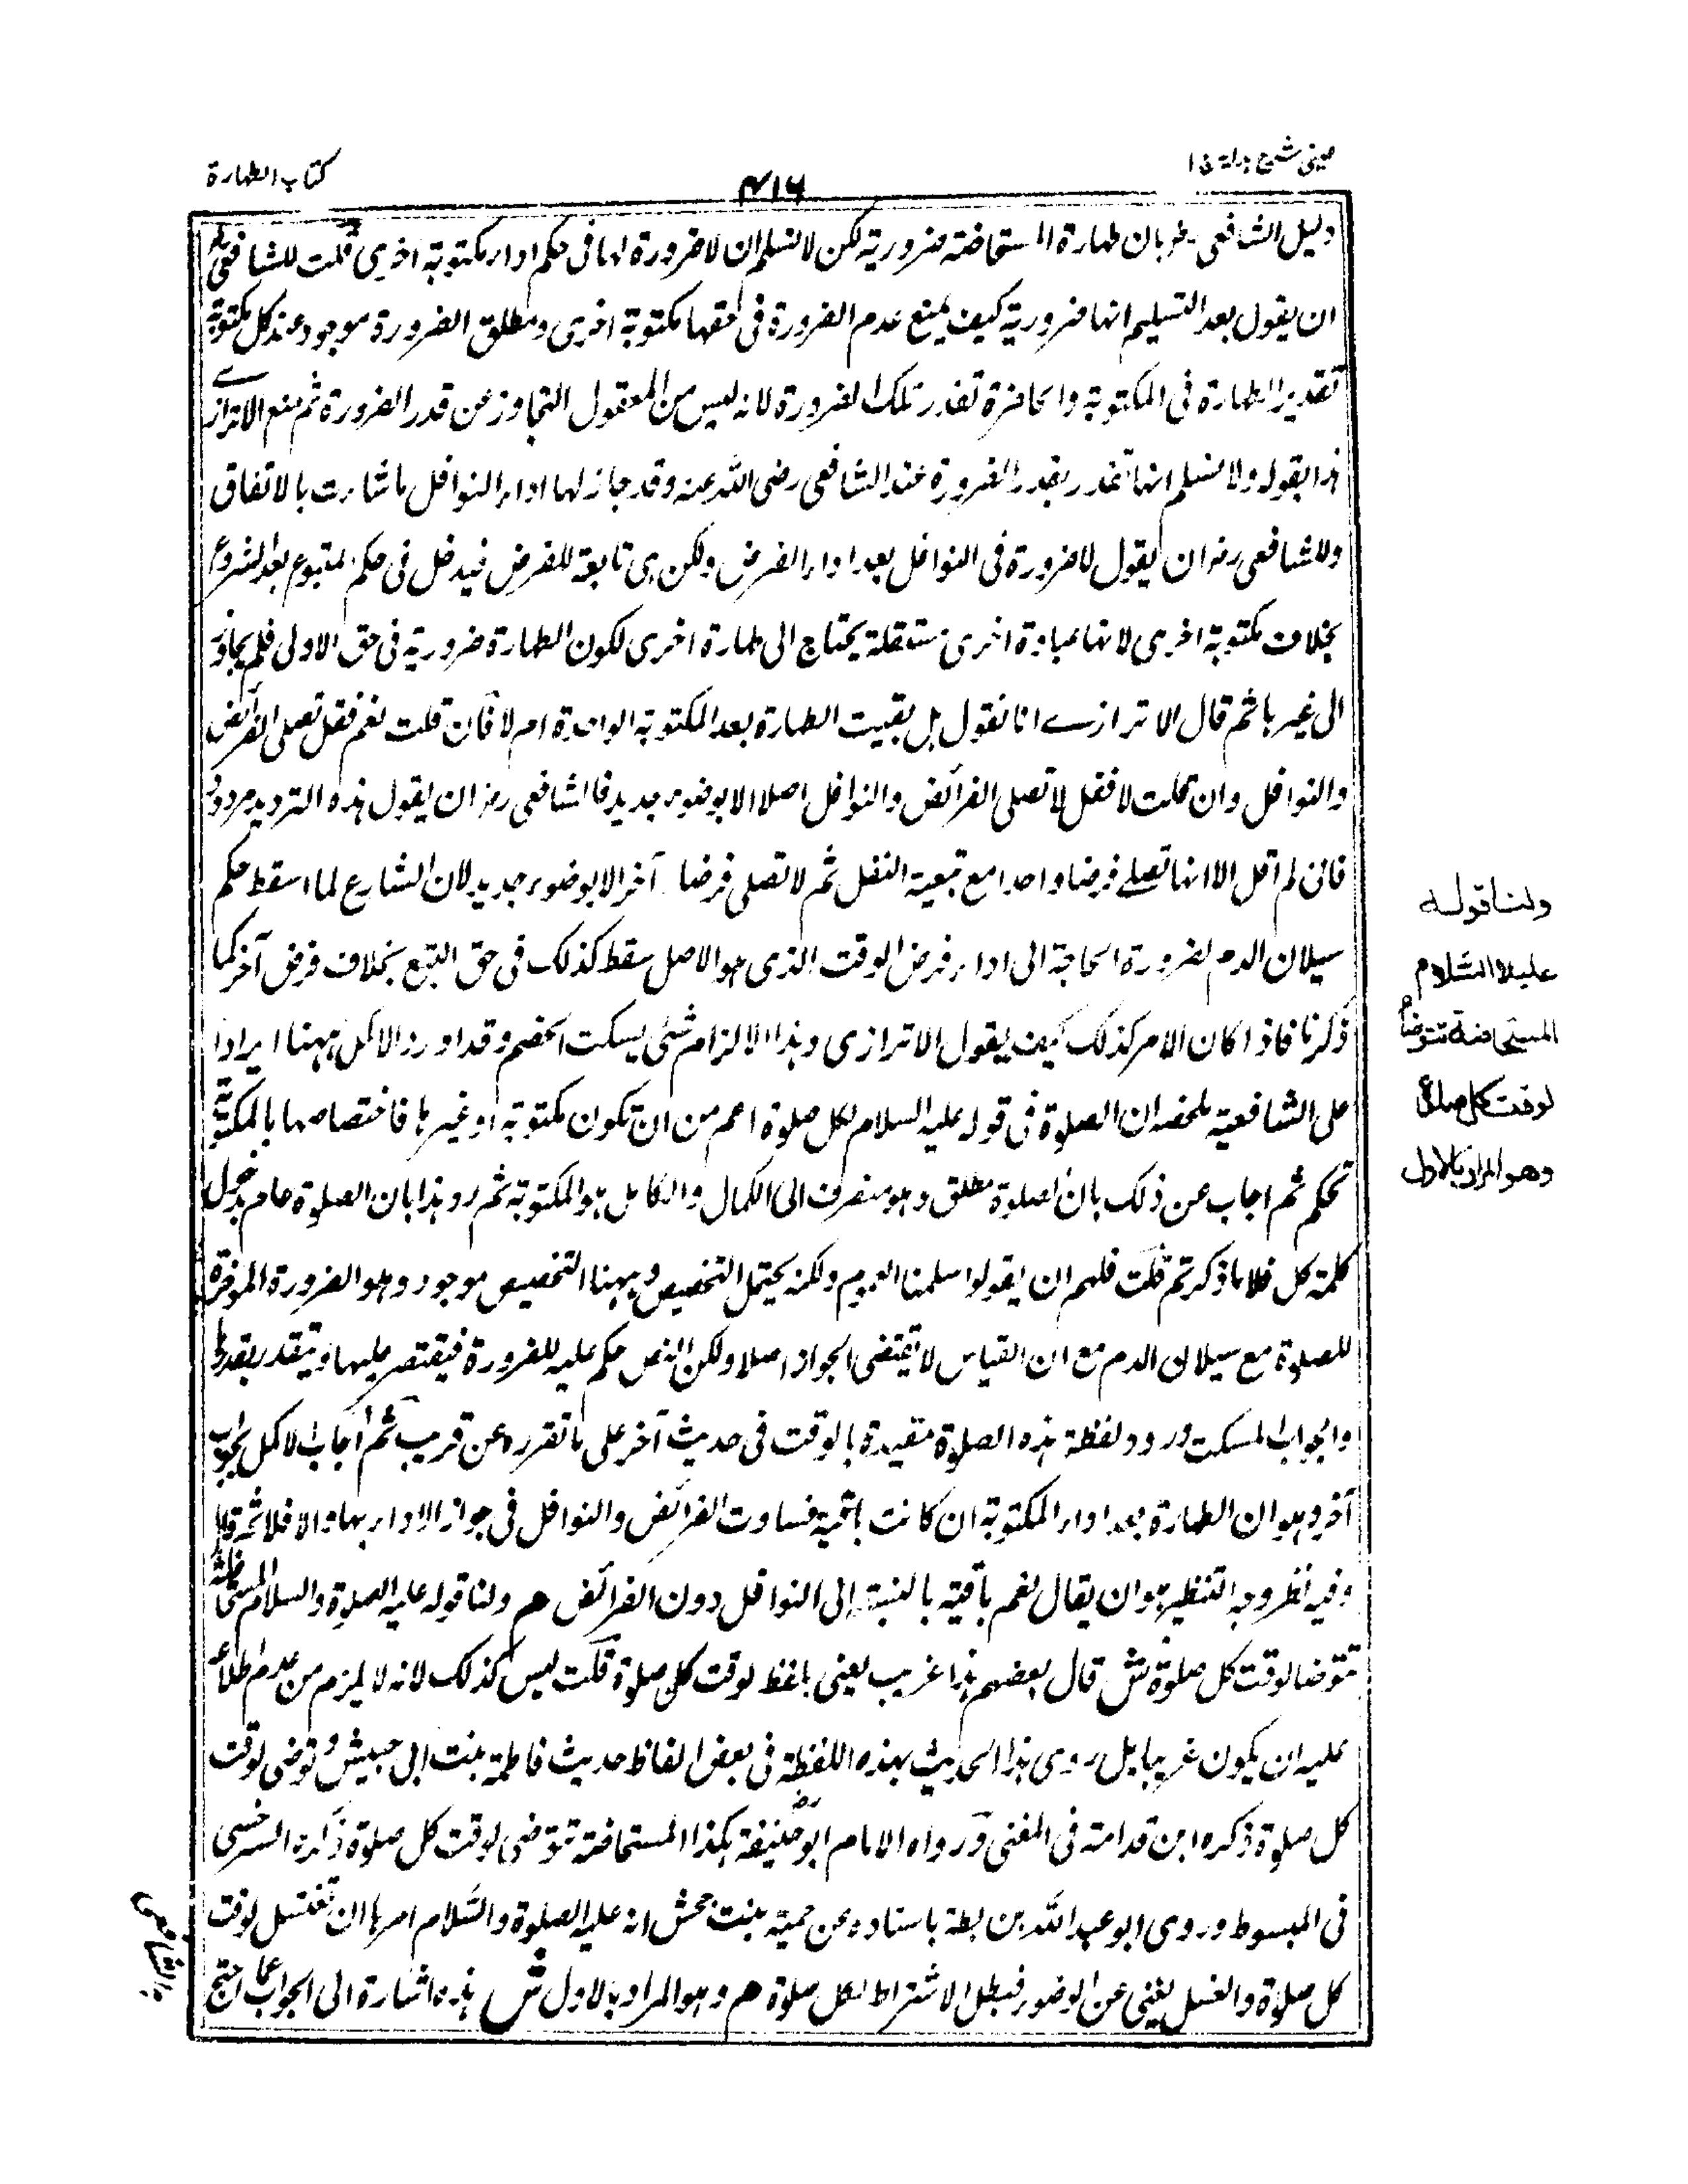 عینی شرح ہدایة ۱
۴۱۶
كتاب الطهارة
دليل الشافعى رض بان طهارة المستحاضة ضرورية لكن لا نسلم ان لا ضرورة لها فى حكم اداء مكتوبة اخرى قلت للشافعى رض
ان يقول بعد التسليم انها ضرورية كيف يمنع عدم الضرورة فى حقها مكتوبة اخرى ومطلق الضرورة موجود عند كل مكتوبة
تقدير الطهارة فى المكتوبة والحاضرة تقدر تلك الضرورة لانه ليس من المعقول التجاوز عن قدر الضرورة ثم منع الاترازے
هذا بقوله ولا نسلم انها تقدر بقدر الضرورة عند الشافعى رضى الله عنه وقد جاز لها اداء النوافل ما شاءت بالاتفاق
وللشافعى رض ان يقول لا ضرورة فى النوافل بعد اداء الفرض ولكن هى تابعة للفرض فيدخل فى حكم المتبوع بعد الشروع
بخلاف مكتوبة اخرى لانها عبادة اخرى مستقلة يحتاج الى طهارة اخرى لكون الطهارة ضرورية فى حق الاولى فلم يجاوز
الى غيرها ثم قال الاترازے انا نقول هل بقيت الطهارة بعد المكتوبة الواحدة ام لا فان قلت نعم فقل تصلى الفرائض
والنوافل وان قلت لا فقل لا تصلى الفرائض والنوافل اصلا الا بوضوء جديد فالشافعى رض ان يقول هذه الترديد مردود
فانى لم اقل الا انها تصلے فرضا واحدا مع تبعية النفل ثم لا تصلى فرضا آخر الا بوضوء جديد لان الشارع لما اسقط حكم
سيلان الدم لضرورة الحاجة الى اداء فرض الوقت الذى هو الاصل سقط كذلك فى حق التبع بخلاف فرض آخر كما
ذكرنا فاذا كان الامر كذلك كيف يقول الاترازى وهذا الالزام شئ يسكت الخصم وقد اورد الاكمل ههنا ايرادا
على الشافعية ملخصه ان الصلوة فى قوله عليه السلام لكل صلوة اعم من ان تكون مكتوبة او غيرها فاختصاصها بالمكتوبة
تحكم ثم اجاب عن ذلك بان الصلوة مطلق وهو منصرف الى الكمال والكامل هو المكتوبة ثم رد هذا بان الصلوة عام بدخول
كلمة كل فلا ما ذكرتم قلت فلهم ان يقولوا سلمنا العموم ولكنه يحتمل التخصيص وههنا التخصيص موجود وهو الضرورة الموفرة
للصلوة مع سيلان الدم مع ان القياس لا يقتضى الجواز اصلا ولكن النص حكم عليه للضرورة فيقتصر عليها ويتقدر بقدرها
والجواب المسكت ورود لفظة هذه الصلوة مقيدة بالوقت فى حديث آخر على ما نقرره عن قريب ثم اجاب الاكمل بجواب
آخر وهو ان الطهارة بعد اداء المكتوبة ان كانت باقية فساوت الفرائض والنوافل فى جواز الاداء بها والا فلا ثم قال
وفيه نظر وجه التنظير هو ان يقال نعم باقية بالنسبة الى النوافل دون الفرائض هم ولنا قوله عليه الصلوة والسلام المستحاضة
تتوضا لوقت كل صلوة ش قال بعضهم هذا غريب يعنى بلفظ لوقت كل صلوة قلت ليس كذلك لانه لا يلزم من عدم اطلاعه
عليه ان يكون غريبا بل روى هذا الحديث بهذه اللفظة فى بعض الفاظ حديث فاطمة بنت ابى حبيش وتوضى لوقت
كل صلوة ذكره ابن قدامة فى المغنى ورواه الامام ابو حنيفة رض هكذا المستحاضة تتوضى لوقت كل صلوة ذكره السرخسى
فى المبسوط وروى ابو عبد الله بن بطة باسناده عن حمنة بنت جحش انه عليه الصلوة والسلام امرها ان تغتسل لوقت
كل صلوة والغسل يغنى عن الوضوء فبطل الاشتراط لكل صلوة هم وهو المراد بالاول ش هذه اشارة الى الجواب عما احتج
ولنا قوله
عليه السلام
المستحاضة تتوضأ
لوقت كل صلوة
وهو المراد بالاول
به الشافعى